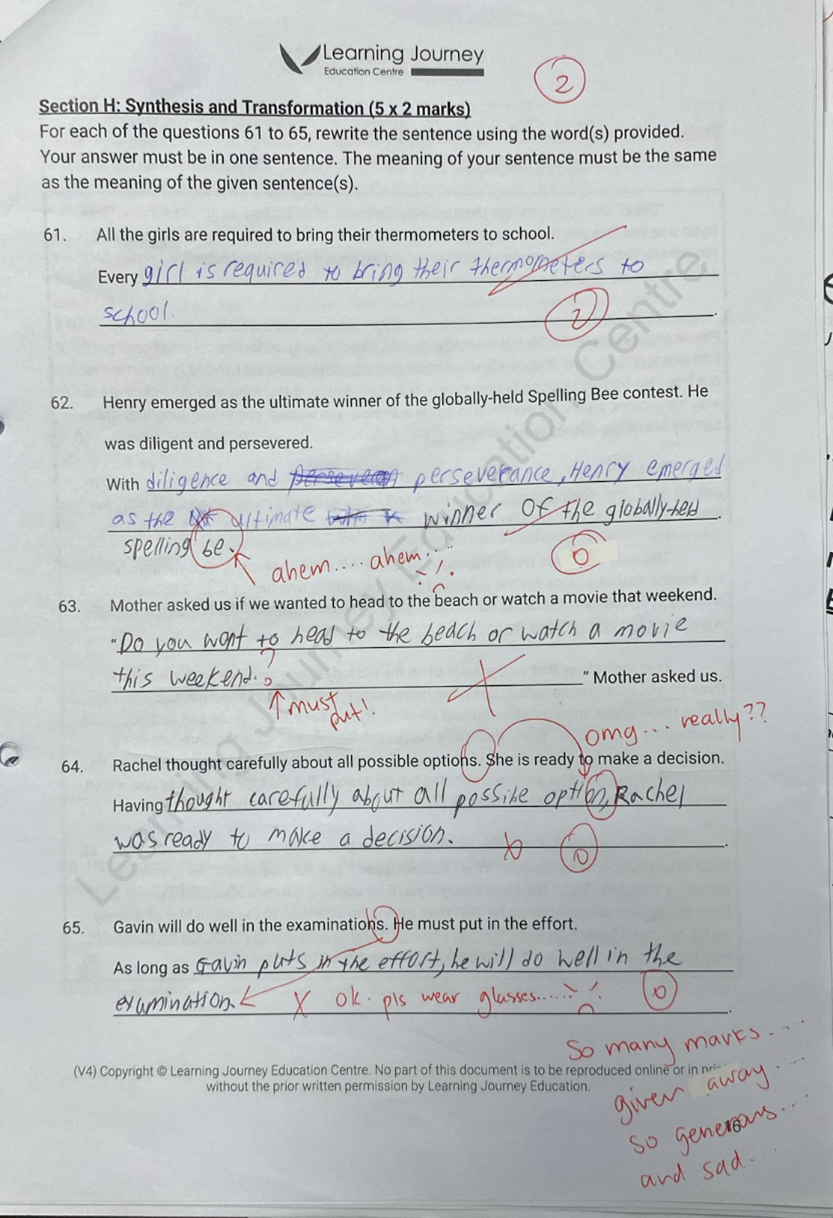 Learning Journey
Education Centre
2
Section H: Synthesis and Transformation (5 x 2 marks)
For each of the questions 61 to 65, rewrite the sentence using the word(s) provided.
Your answer must be in one sentence. The meaning of your sentence must be the same
as the meaning of the given sentence(s).
61. All the girls are required to bring their thermometers to school.
Every girl is required to bring their thermometers to
school.
2
62. Henry emerged as the ultimate winner of the globally-held Spelling Bee contest. He
was diligent and persevered.
With diligence and perseverance, Henry emerged
as the ultimate winner of the globally-held
spelling be.
ahem.... ahem....
0
63. Mother asked us if we wanted to head to the beach or watch a movie that weekend.
"Do you want to head to the beach or watch a movie
this weekend. ?
" Mother asked us.
↑ must
put!
omg... really??
64. Rachel thought carefully about all possible options. She is ready to make a decision.
Having thought carefully about all possibe option, Rachel
was ready to make a decision.
0
65. Gavin will do well in the examinations. He must put in the effort.
As long as Gavin puts in the effort, he will do well in the
examination.
ok. pls wear glasses.....
0
So many marks...
given away...
so generous...
and sad...
(V4) Copyright © Learning Journey Education Centre. No part of this document is to be reproduced online or in
without the prior written permission by Learning Journey Education.
16
Learning Journey Education Centre